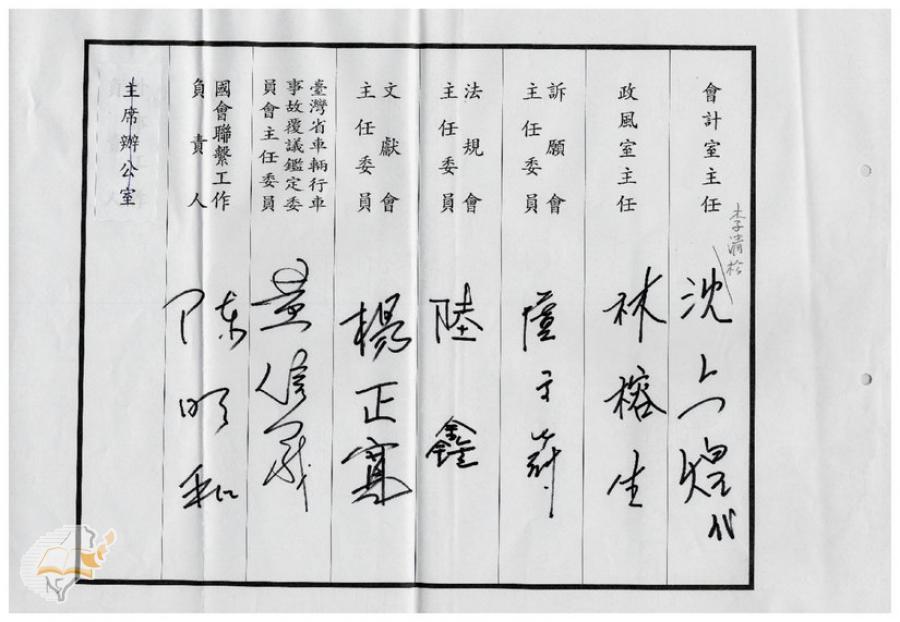 會計室主任
李清松
沈
煌代
政風室主任
林榕生
訴願會
主任委員
法規會
主任委員
陸鑫
文獻會
主任委員
楊正寬
臺灣省車輛行車
事故覆議鑑定委
員會主任委員
黃信義
國會聯繫工作
負責人
陳明和
主席辦公室